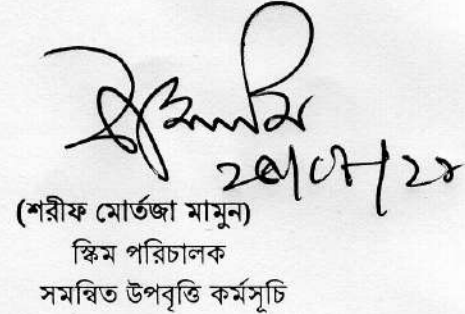 (শরীফ মোর্তজা মামুন)
স্কিম পরিচালক
সমন্বিত উপবৃত্তি কর্মসূচি